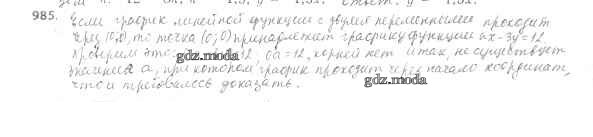 985. Если график линейной функции с двумя переменными проходит
через (0,0), то точка (0; 0) принадлежит графику функции ax-3y=12
Проверим это: 12, 0a=12, корней нет итак, не существует
значения a, при котором график проходит через начало координат,
что и требовалось доказать.
gdz.moda
gdz.moda
gdz.moda